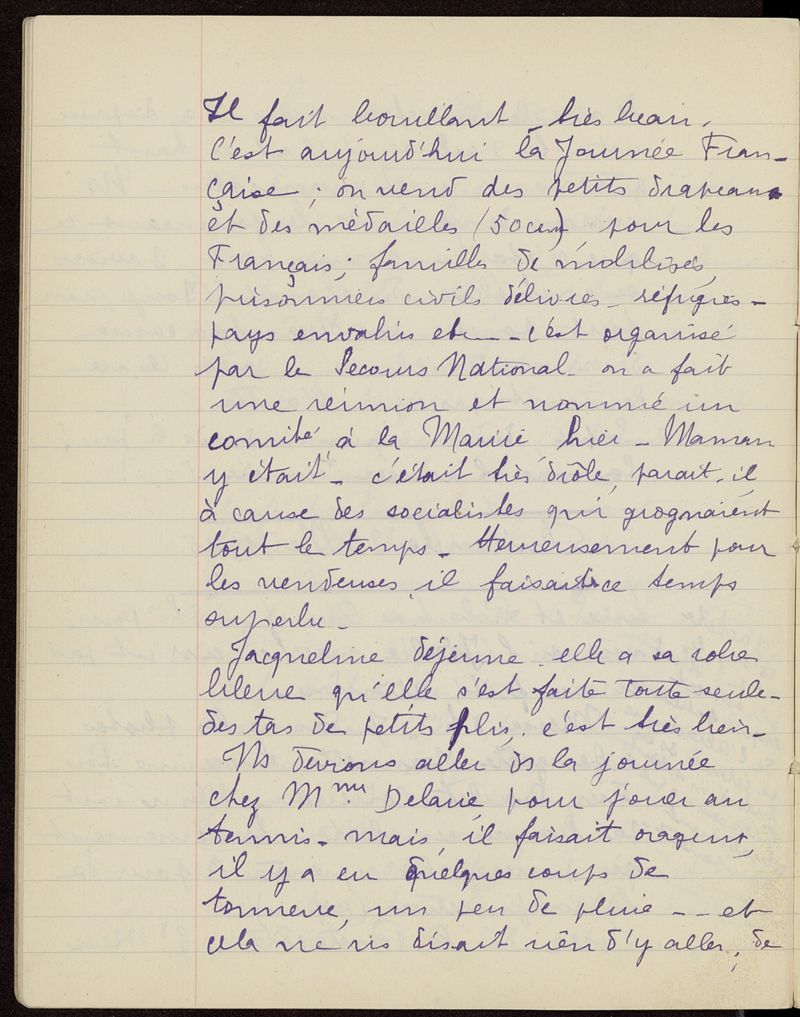 Il fait bouillant - très beau.
C'est aujourd'hui la Journée Fran-
çaise ; on vend des petits drapeaux
et des médailles (50 cen) pour les
Français ; familles de mobilisés,
prisonniers civils délivrés - réfugiés -
pays envahis etc - c'est organisé
par le Secours National - on a fait
une réunion et nommé un
comité à la Mairie hier - Maman
y était - c'était très drôle, parait-il
à cause des socialistes qui grognaient
tout le temps - Heureusement pour
les vendeuses, il faisait ce temps
superbe -
Jacqueline déjeune. elle a sa robe
bleue qu'elle s'est faite toute seule -
des tas de petits plis, c'est très bien -
Ns devions aller ds la journée
chez Mme Delarie, pour jouer au
tennis - mais, il faisait orageux,
il y a eu quelques coups de
tonnerre, un peu de pluie - - et
cela ne ns disait rien d'y aller ; de